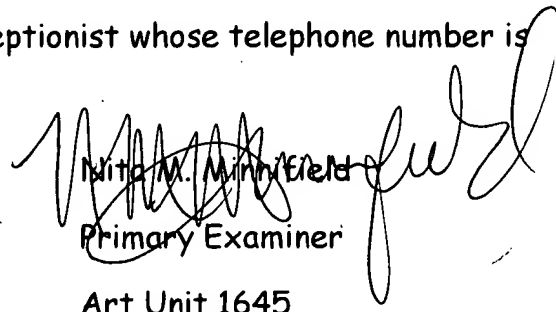 eptionist whose telephone number is
Nita M. Minnifield
Primary Examiner
Art Unit 1645